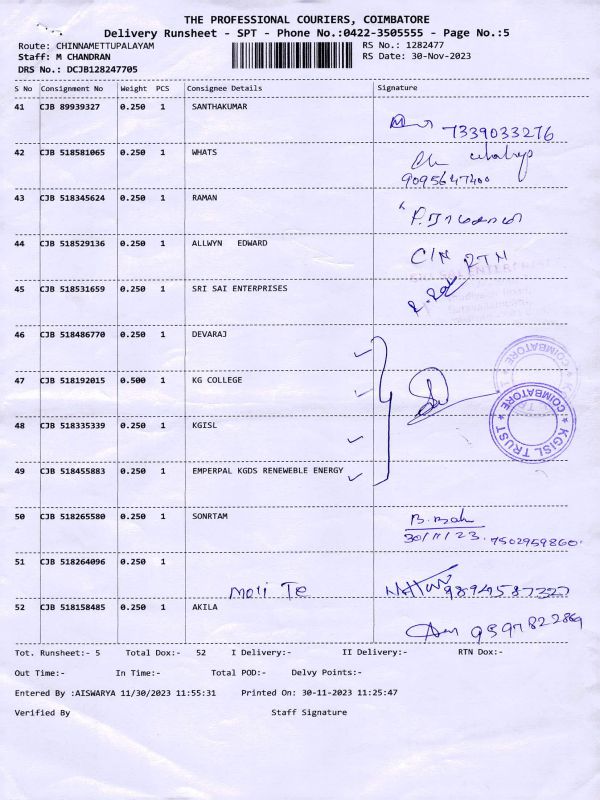 THE PROFESSIONAL COURIERS, COIMBATORE
Delivery Runsheet - SPT - Phone No.:0422-3505555 - Page No.:5
Route: CHINNAMETTUPALAYAM
RS No.: 1282477
Staff: M CHANDRAN
RS Date: 30-Nov-2023
DRS No.: DCJB128247705
S No Consignment No Weight PCS Consignee Details Signature
41 CJB 89939327 0.250 1 SANTHAKUMAR
7339033276
42 CJB 518581065 0.250 1 WHATS
9095647400
43 CJB 518345624 0.250 1 RAMAN
44 CJB 518529136 0.250 1 ALLWYN EDWARD
C/N RTN
45 CJB 518531659 0.250 1 SRI SAI ENTERPRISES
46 CJB 518486770 0.250 1 DEVARAJ
47 CJB 518192015 0.500 1 KG COLLEGE
48 CJB 518335339 0.250 1 KGISL
KGISL TRUST * COIMBATORE *
49 CJB 518455883 0.250 1 EMPERPAL KGDS RENEWEBLE ENERGY
50 CJB 518265580 0.250 1 SONRTAM
30/11/23. 7502959860.
51 CJB 518264096 0.250 1
Moti Te 9894587327
52 CJB 518158485 0.250 1 AKILA
9597822869
Tot. Runsheet:- 5 Total Dox:- 52 I Delivery:- II Delivery:- RTN Dox:-
Out Time:- In Time:- Total POD:- Delvy Points:-
Entered By :AISWARYA 11/30/2023 11:55:31 Printed On: 30-11-2023 11:25:47
Verified By Staff Signature